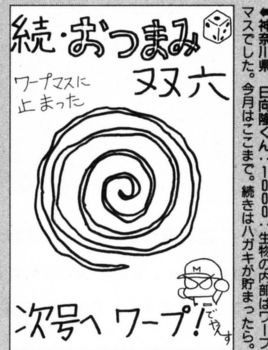 続・おつまみ
双六
ワープマスに
止まった
M
次号へワープ!
でやんす
●神奈川県 日向隆くん:1000:生物の内部はワープ
マスでした。今月はここまで。続きはハガキが貯まったら。